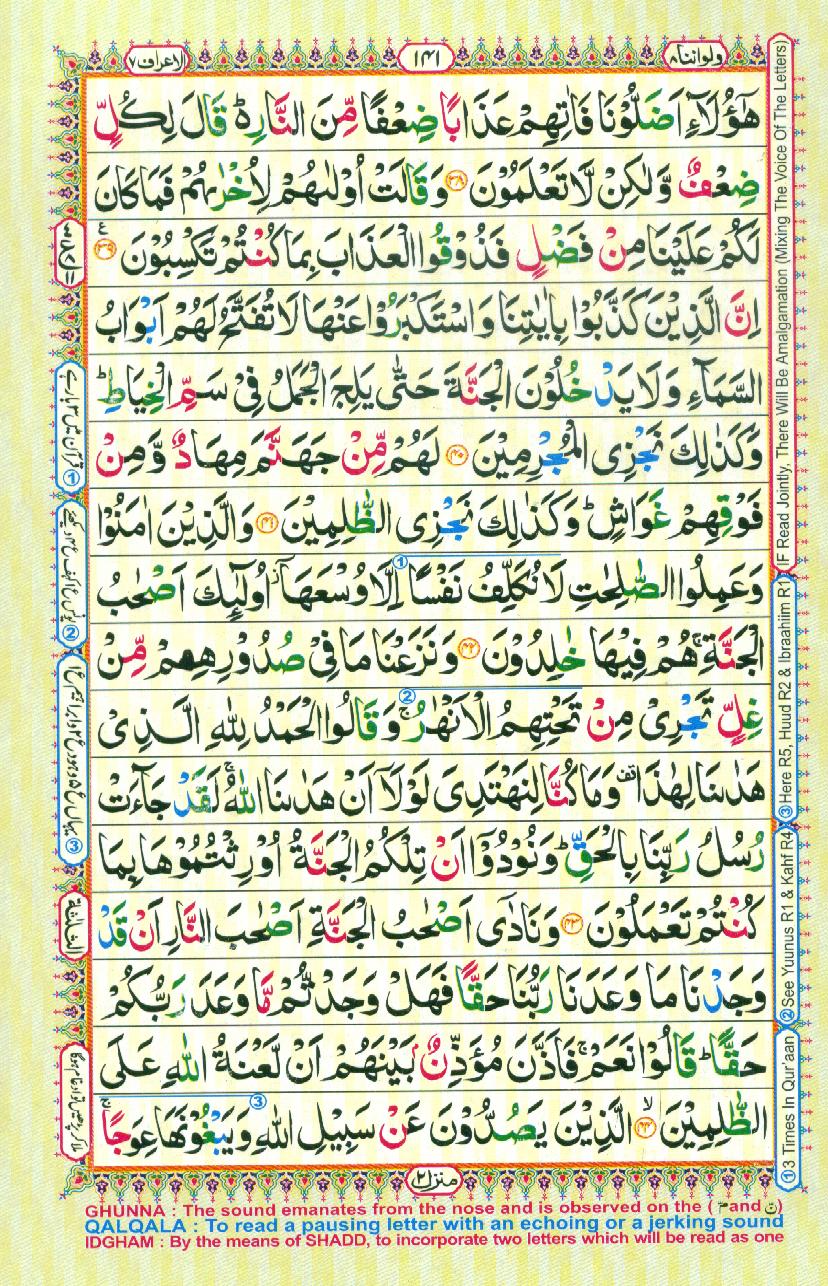 الاعراف٧
١٤١
ولواننا٨
هٰۤؤُلَآءِ اَضَلُّوْنَا فَاٰتِهِمْ عَذَابًا ضِعْفًا مِّنَ النَّارِ۬ؕ قَالَ لِكُلٍّ
ضِعْفٌ وَّلٰكِنْ لَّا تَعْلَمُوْنَ ﴿۳۸﴾ وَقَالَتْ اُوْلٰىهُمْ لِاُخْرٰىهُمْ فَمَا كَانَ
لَكُمْ عَلَيْنَا مِنْ فَضْلٍ فَذُوْقُوا الْعَذَابَ بِمَا كُنْتُمْ تَكْسِبُوْنَ ﴿۳۹﴾
اِنَّ الَّذِيْنَ كَذَّبُوْا بِاٰيٰتِنَا وَاسْتَكْبَرُوْا عَنْهَا لَا تُفَتَّحُ لَهُمْ اَبْوَابُ
السَّمَآءِ وَلَا يَدْخُلُوْنَ الْجَنَّةَ حَتّٰى يَلِجَ الْجَمَلُ فِيْ سَمِّ الْخِيَاطِؕ
وَكَذٰلِكَ نَجْزِى الْمُجْرِمِيْنَ ﴿۴۰﴾ لَهُمْ مِّنْ جَهَنَّمَ مِهَادٌ وَّمِنْ
فَوْقِهِمْ غَوَاشٍؕ وَكَذٰلِكَ نَجْزِى الظّٰلِمِيْنَ ﴿۴۱﴾ وَالَّذِيْنَ اٰمَنُوْا
وَعَمِلُوا الصّٰلِحٰتِ لَا نُكَلِّفُ نَفْسًا اِلَّا وُسْعَهَاۤ اُولٰٓئِكَ اَصْحٰبُ
الْجَنَّةِۚ هُمْ فِيْهَا خٰلِدُوْنَ ﴿۴۲﴾ وَنَزَعْنَا مَا فِيْ صُدُوْرِهِمْ مِّنْ
غِلٍّ تَجْرِيْ مِنْ تَحْتِهِمُ الْاَنْهٰرُۚ وَقَالُوا الْحَمْدُ لِلّٰهِ الَّذِيْ
هَدٰىنَا لِهٰذَا وَمَا كُنَّا لِنَهْتَدِيَ لَوْلَاۤ اَنْ هَدٰىنَا اللّٰهُۚ لَقَدْ جَآءَتْ
رُسُلُ رَبِّنَا بِالْحَقِّؕ وَنُوْدُوْۤا اَنْ تِلْكُمُ الْجَنَّةُ اُوْرِثْتُمُوْهَا بِمَا
كُنْتُمْ تَعْمَلُوْنَ ﴿۴۳﴾ وَنَادٰٓى اَصْحٰبُ الْجَنَّةِ اَصْحٰبَ النَّارِ اَنْ قَدْ
وَجَدْنَا مَا وَعَدَنَا رَبُّنَا حَقًّا فَهَلْ وَجَدْتُّمْ مَّا وَعَدَ رَبُّكُمْ
حَقًّاؕ قَالُوْا نَعَمْۚ فَاَذَّنَ مُؤَذِّنٌۢ بَيْنَهُمْ اَنْ لَّعْنَةُ اللّٰهِ عَلَى
الظّٰلِمِيْنَ ﴿۴۴﴾ الَّذِيْنَ يَصُدُّوْنَ عَنْ سَبِيْلِ اللّٰهِ وَيَبْغُوْنَهَا عِوَجًاۚ
منزل٢
الثلثة
IF Read Jointly, There Will Be Amalgamation (Mixing The Voice Of The Letters)
③Here R5, Huud R2 & Ibraahiim R1
②See Yuunus R1 & Kahf R4
①3 Times In Qur'aan
GHUNNA : The sound emanates from the nose and is observed on the ( مّ and نّ )
QALQALA : To read a pausing letter with an echoing or a jerking sound
IDGHAM : By the means of SHADD, to incorporate two letters which will be read as one